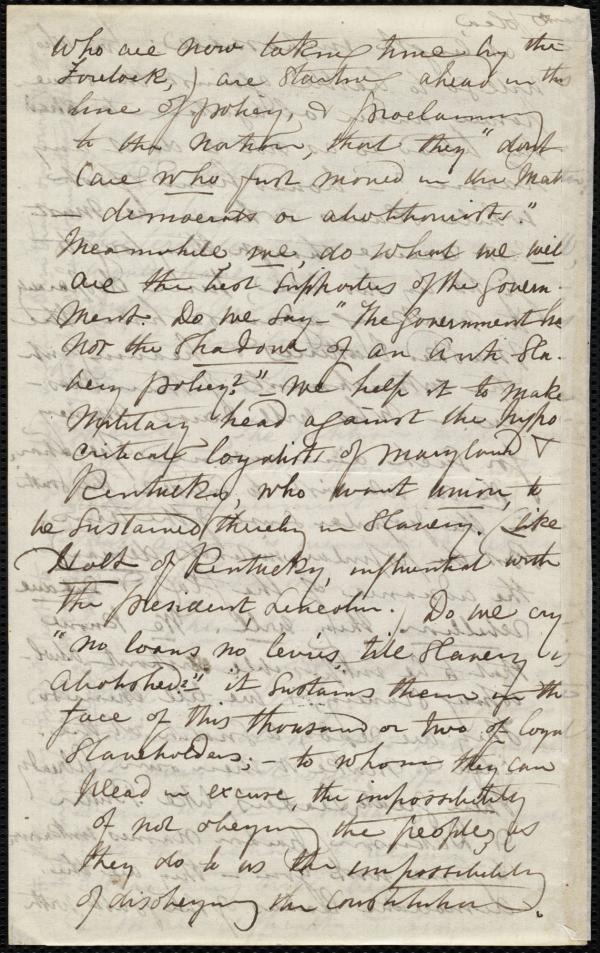 who are now taking time by the
Forelock,) are starting ahead in this
line of policy, & proclaiming
to the nation, that they "dont
care who first moved in the mat
- democrats or abolitionists."
Meanwhile, we, do what we will
are the best supporters of the Govern-
ment. Do we say - "The Government has
not the shadow of an Anti Sla-
very policy?" - we help it to make
military head against the hypo-
critical loyalists of Maryland &
Kentucky, who want union, to
be sustained thereby in Slavery. (Like
Holt of Kentucky, influential with
the president, Lincoln.) Do we cry
"no loans no levies, till Slavery is
Abolished?" it sustains them in the
face of this thousand or two of loyal
Slaveholders; - to whom they can
plead in excuse, the impossibility
of not obeying the people, as
they do to us the impossibility
of disobeying the constitution.